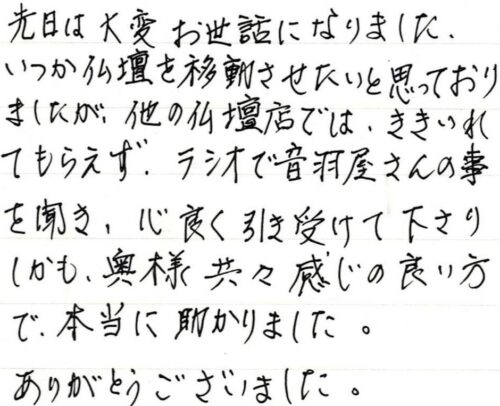 先日は大変お世話になりました.
いつか仏壇を移動させたいと思っており
ましたが、他の仏壇店では、ききいれ
てもらえず、ラジオで音羽屋さんの事
を聞き、心良く引き受けて下さり
しかも、奥様共々感じの良い方
で、本当に助かりました。
ありがとうございました。